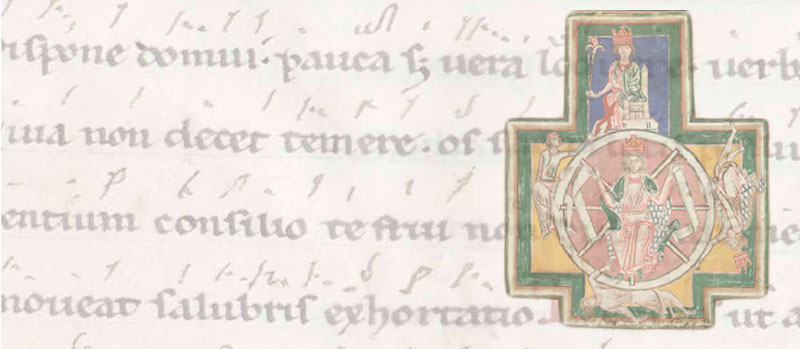 ispone domui. pauca sꝫ uera uerb
non decet temere. os
entium consilio te frui
moueat salubris exhortatio. ut a